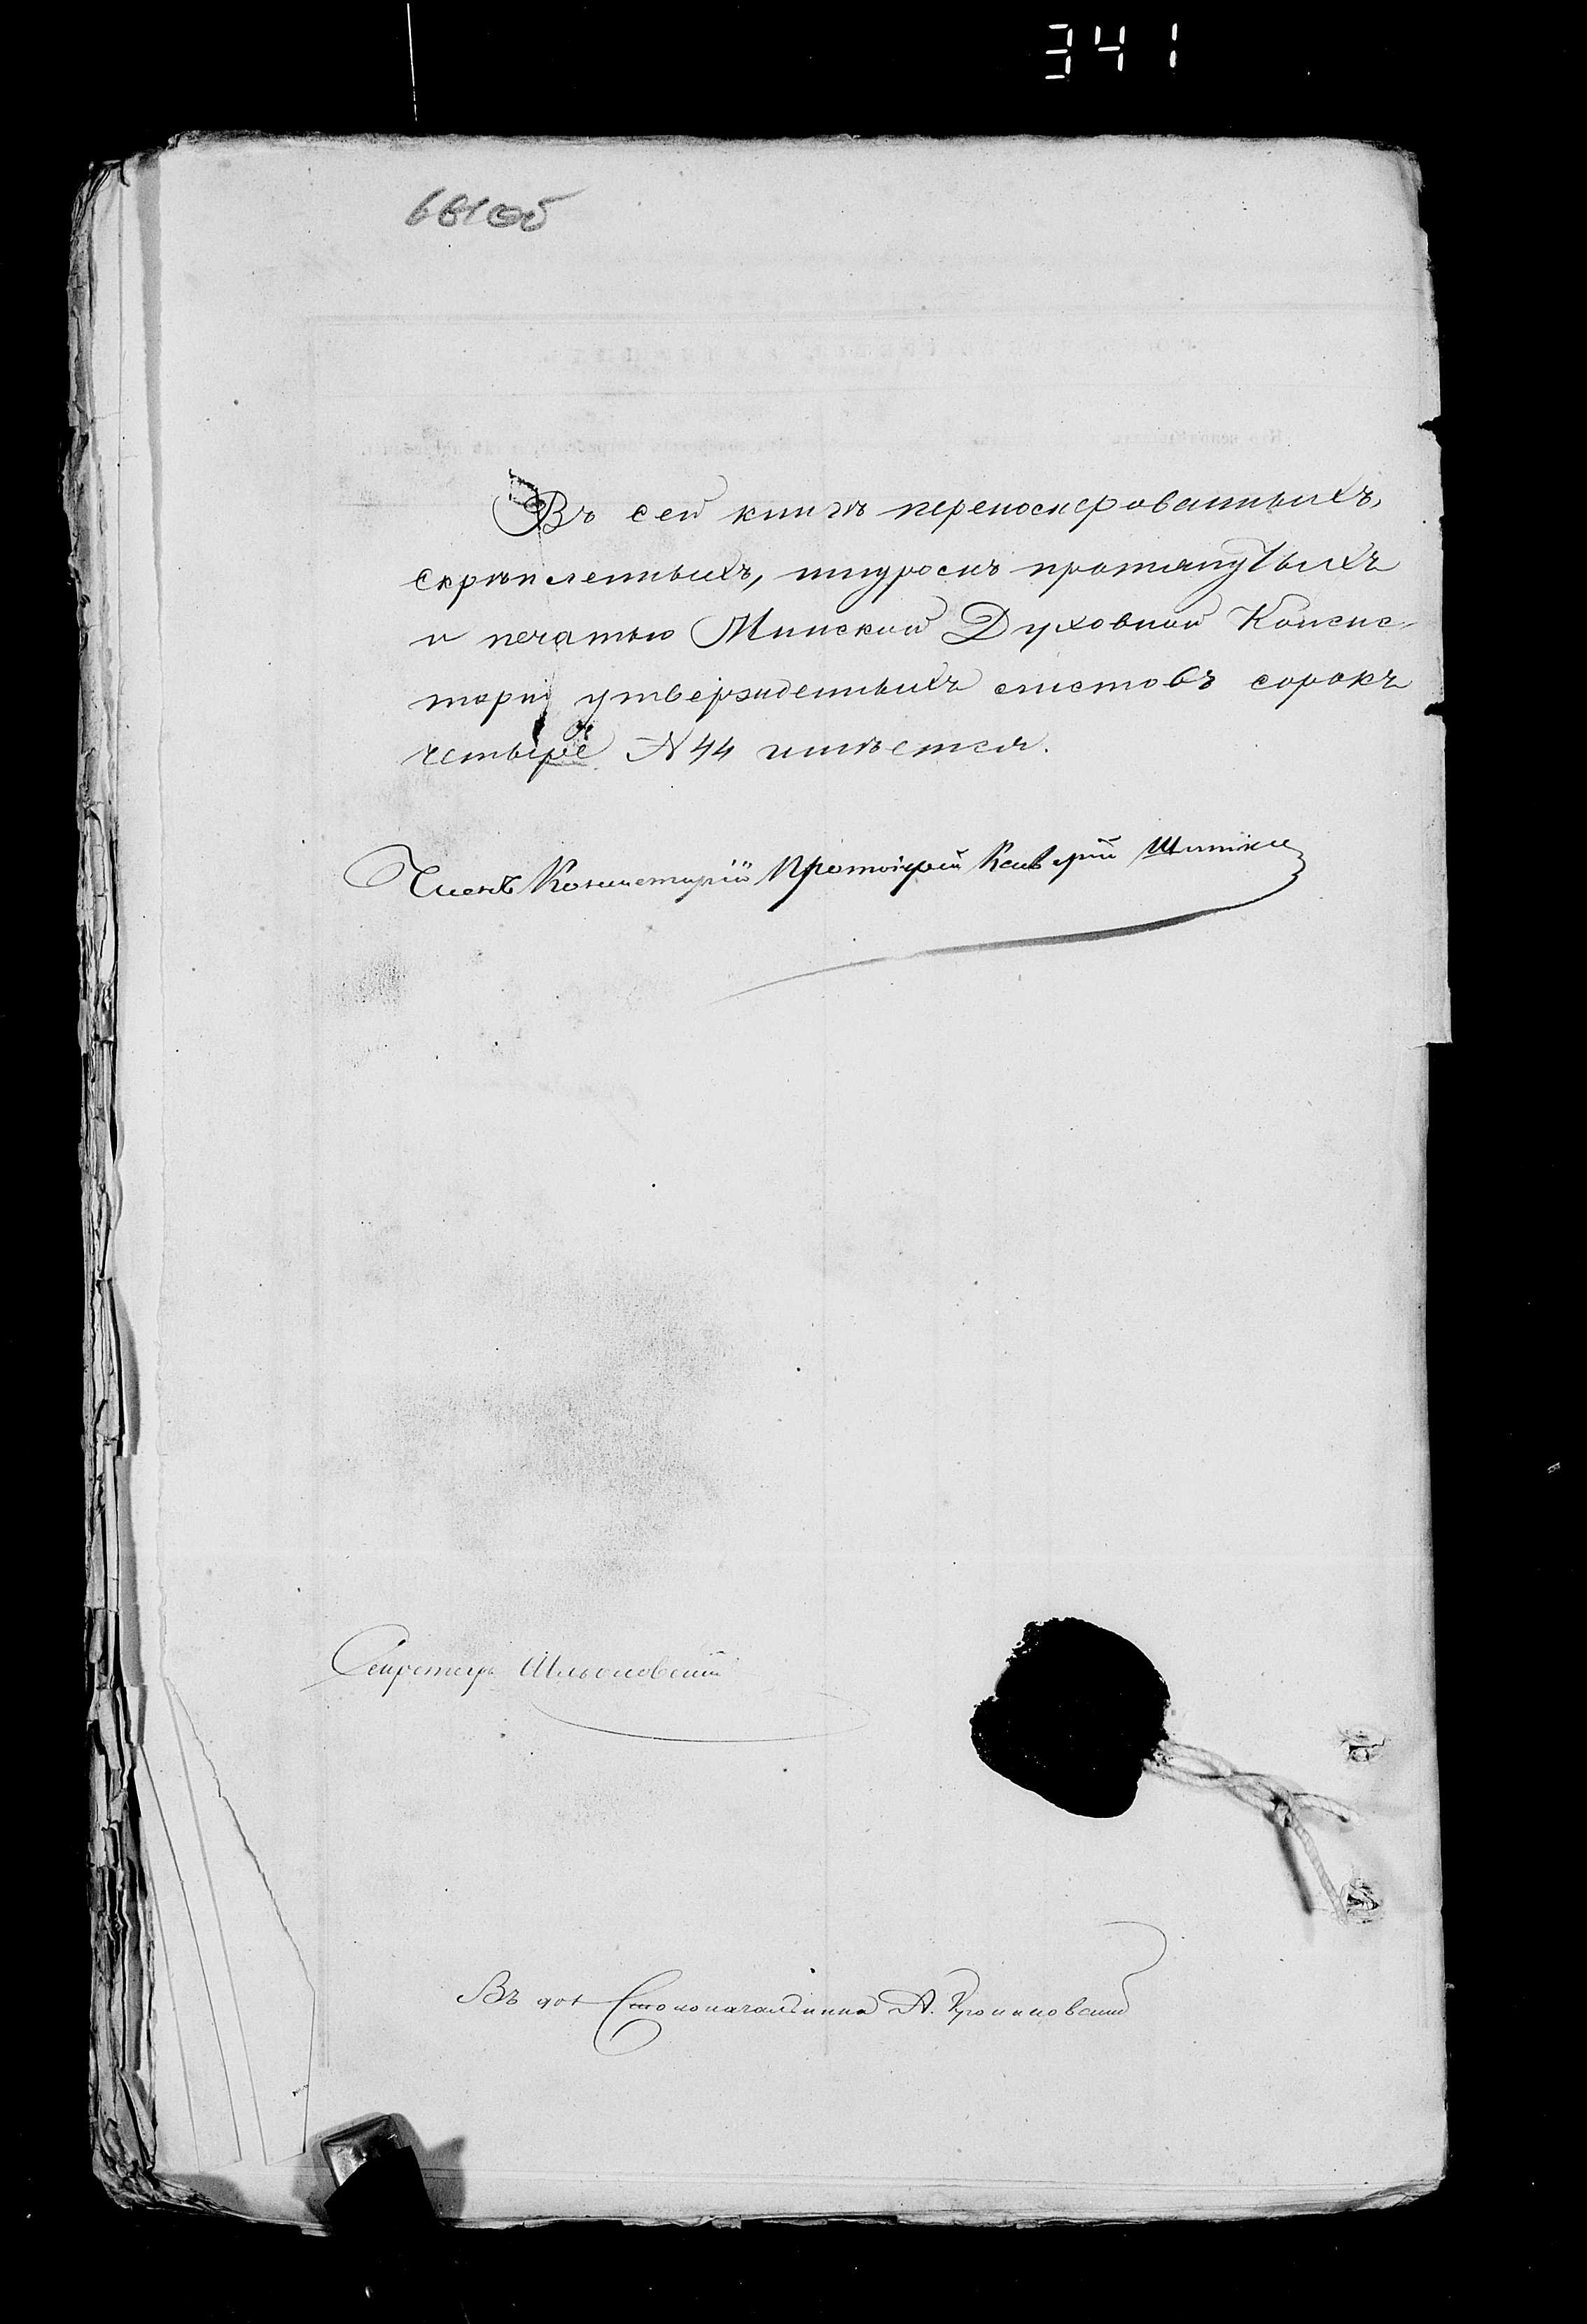 341
681об
Въ сей книгѣ перенумерованныхъ,
скрѣпленныхъ, шнуромъ протянутыхъ
и печатью Минской Духовной Консис-
торіи утвержденныхъ листовъ сорокъ
четыре N 44 имѣется.
Членъ Консисторіи Протоіерей
Секретарь
Въ дол Столоначальника А.